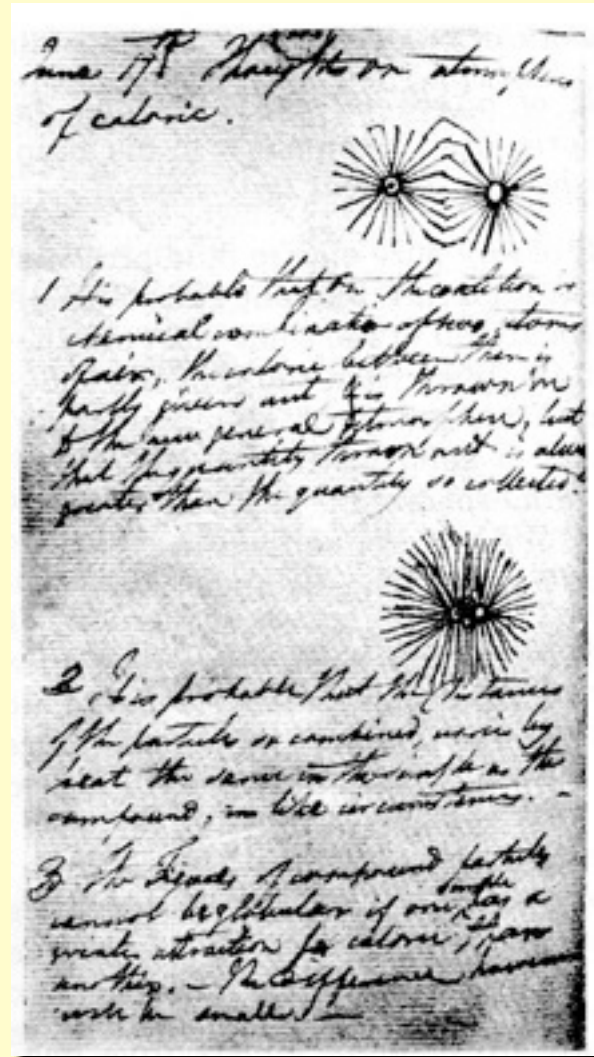 June 17th Thoughts on atmospheres
of caloric.
1 It is probable that on the coalition or
chemical combination of two atoms
of air, the caloric between them is
partly given out & is thrown on
to the new general atmosphere, but
that the quantity thrown out is always
greater than the quantity so collected.
2, It is probable that the distances
of the particles so combined, varies by
heat the same in the simple as the
compound, in like circumstances. –
3 The figures of compound particles
cannot be globular if one simple has a
greater attraction for caloric than
another. – The difference however
will be small. –